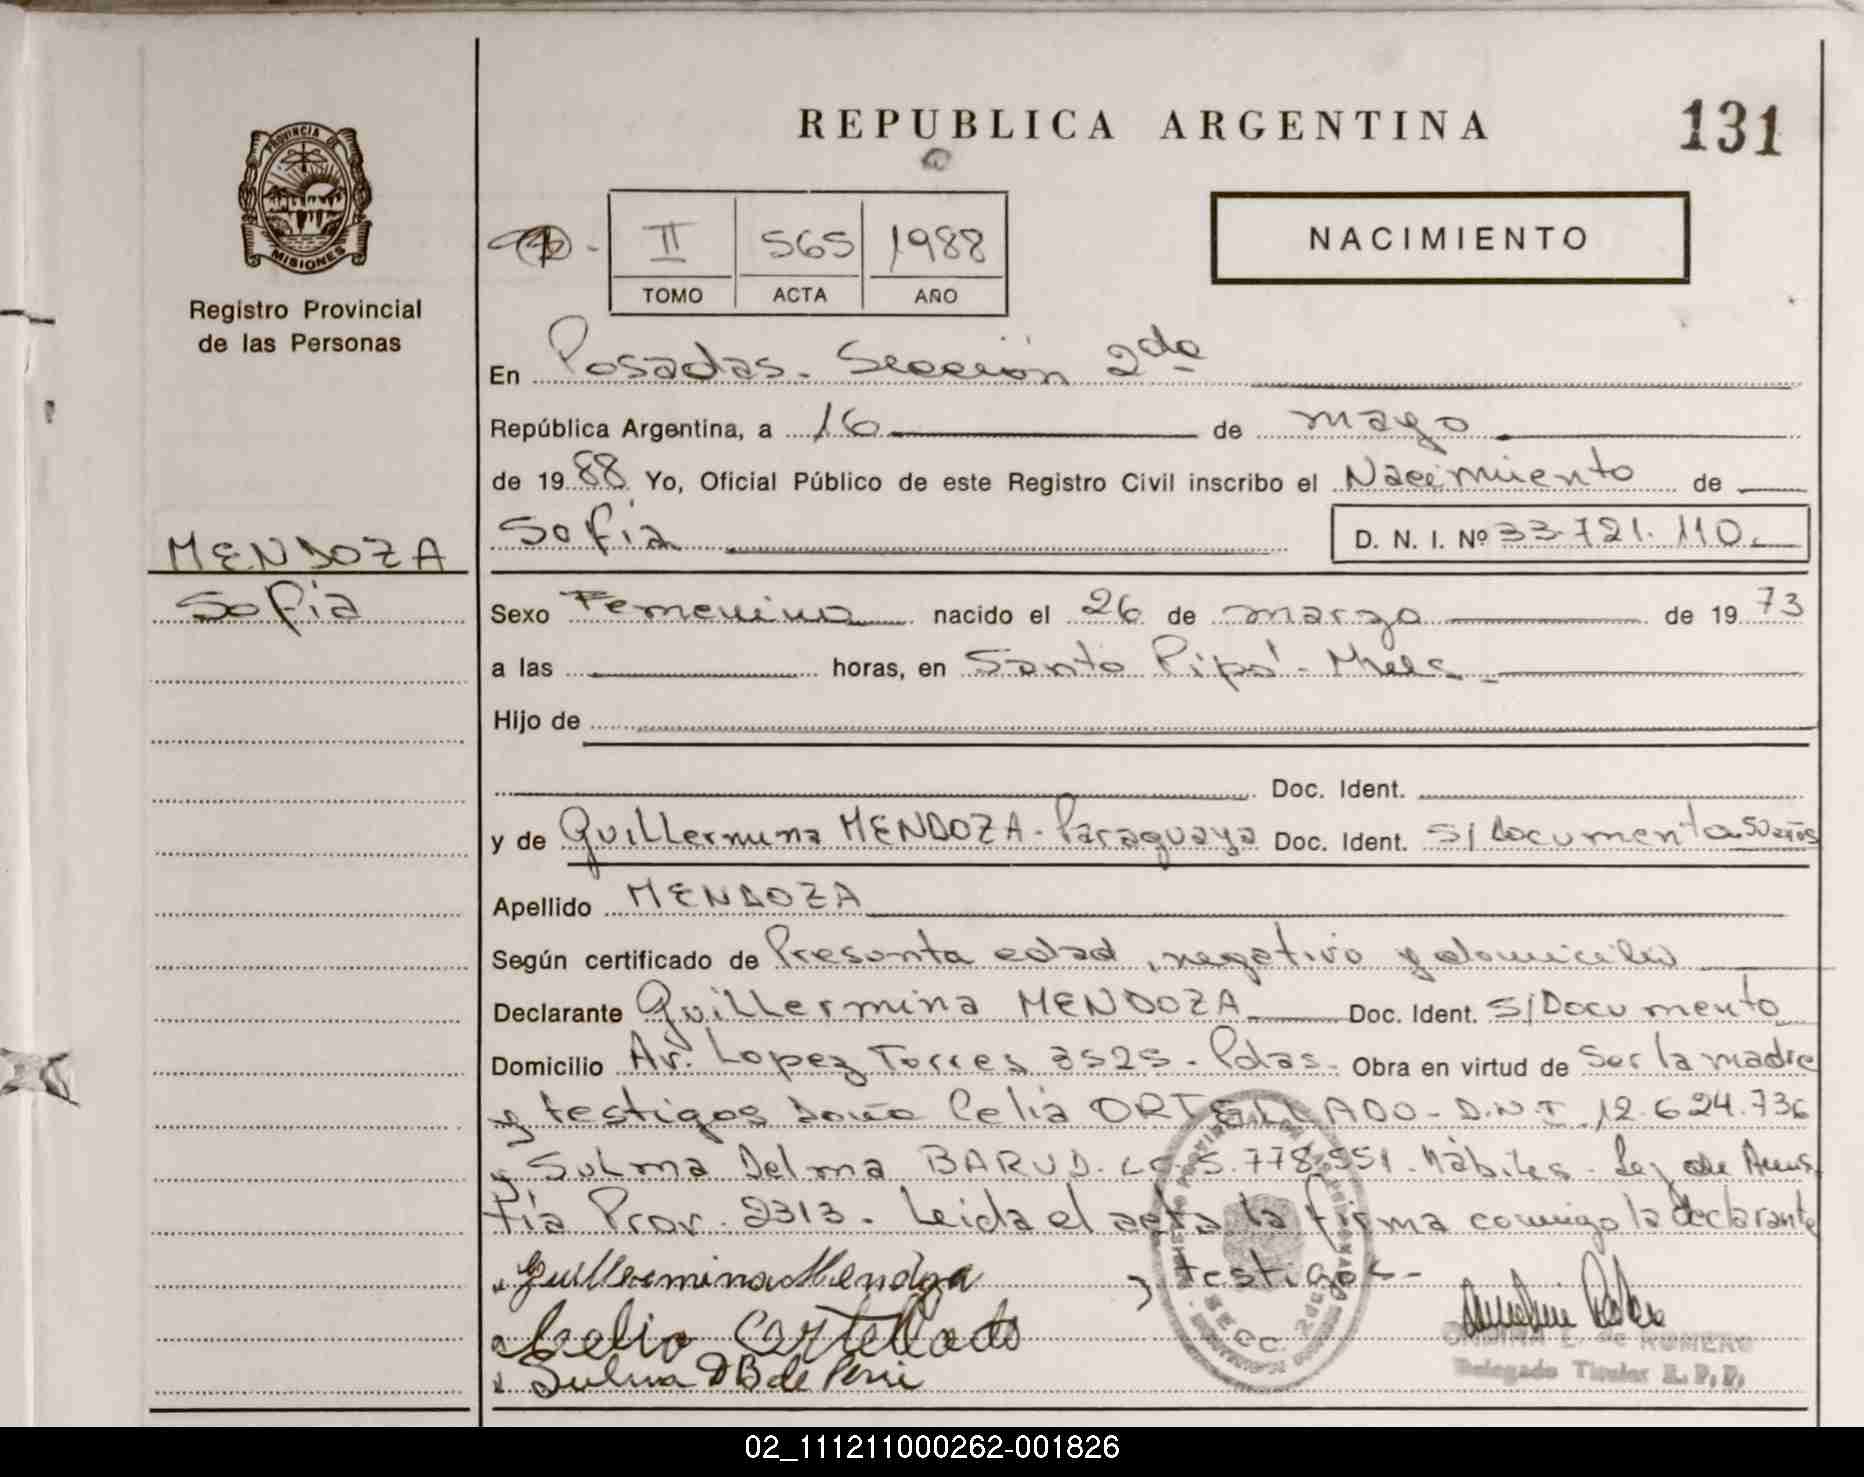 REPUBLICA ARGENTINA
131
PROVINCIA DE
MISIONES
Registro Provincial
de las Personas
II 565 1988
TOMO ACTA AÑO
NACIMIENTO
En Posadas. Sección 2da
República Argentina, a 16 de mayo
de 1988 Yo, Oficial Público de este Registro Civil inscribo el Nacimiento de
MENDOZA
Sofia
Sofia D. N. I. Nº 33.721.110.
Sexo Femenino nacido el 26 de marzo de 1973
a las horas, en Santo Pipó - Mnes
Hijo de
Doc. Ident.
y de Guillermina MENDOZA - Paraguaya Doc. Ident. S/Documento 50 años
Apellido MENDOZA
Según certificado de Presunta edad, negativo y domicilio
Declarante Guillermina MENDOZA Doc. Ident. S/Documento
Domicilio Av. Lopez Torres 3525 - Pdas. Obra en virtud de Ser la madre
y testigos Doña Celia ORTELLADO - D.N.I. 12.624.736
y Sulma Delma BARUD. LC. 5.778.551. Hábiles. Ley de Amnis
tia Prov. 2313. Leida el acta la firma conmigo la declarante
y testigos -
Guillermina Mendoza
Celia Ortellado
Sulma DB de
SECC. 2da
DE ROMERO
Delegado Titular R.P.P.
02_111211000262-001826